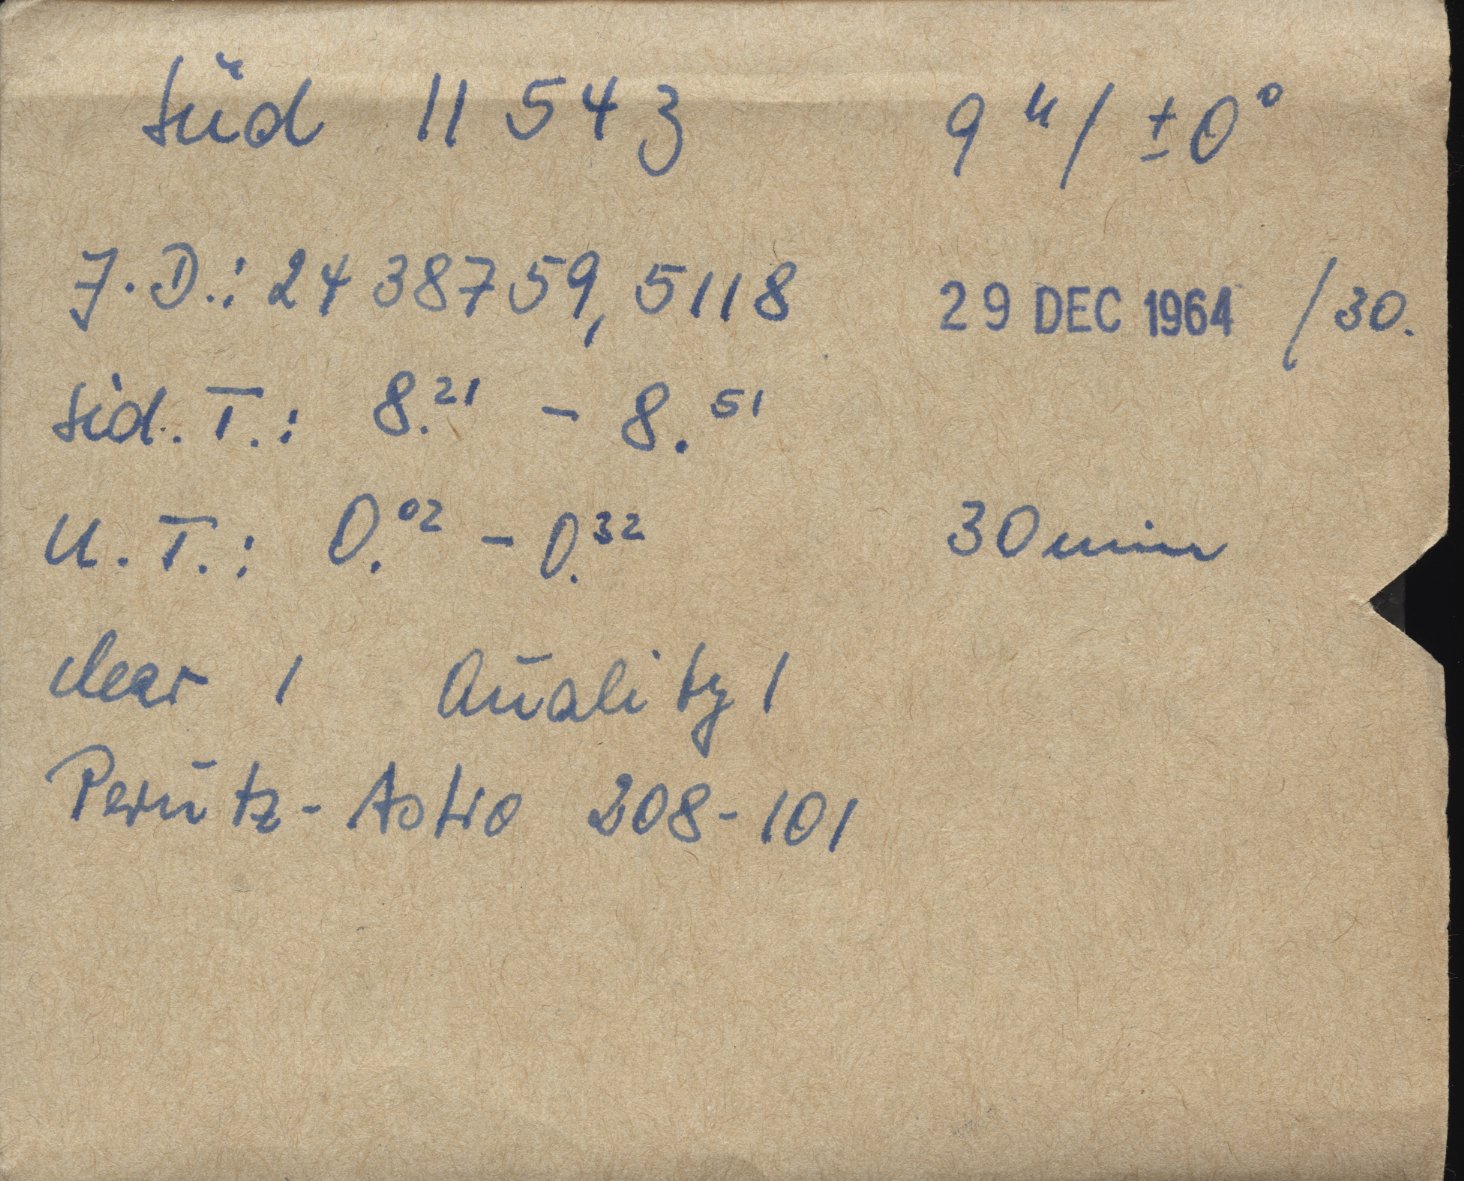 Süd 11 543 9ʰ / ±0°
J.D.: 24 38759,5118 29 DEC 1964 /30.
Sid. T.: 8.²¹ – 8.⁵¹
U.T.: 0.⁰² – 0.³² 30 min
clear 1 Quality 1
Perutz-Astro 208-101